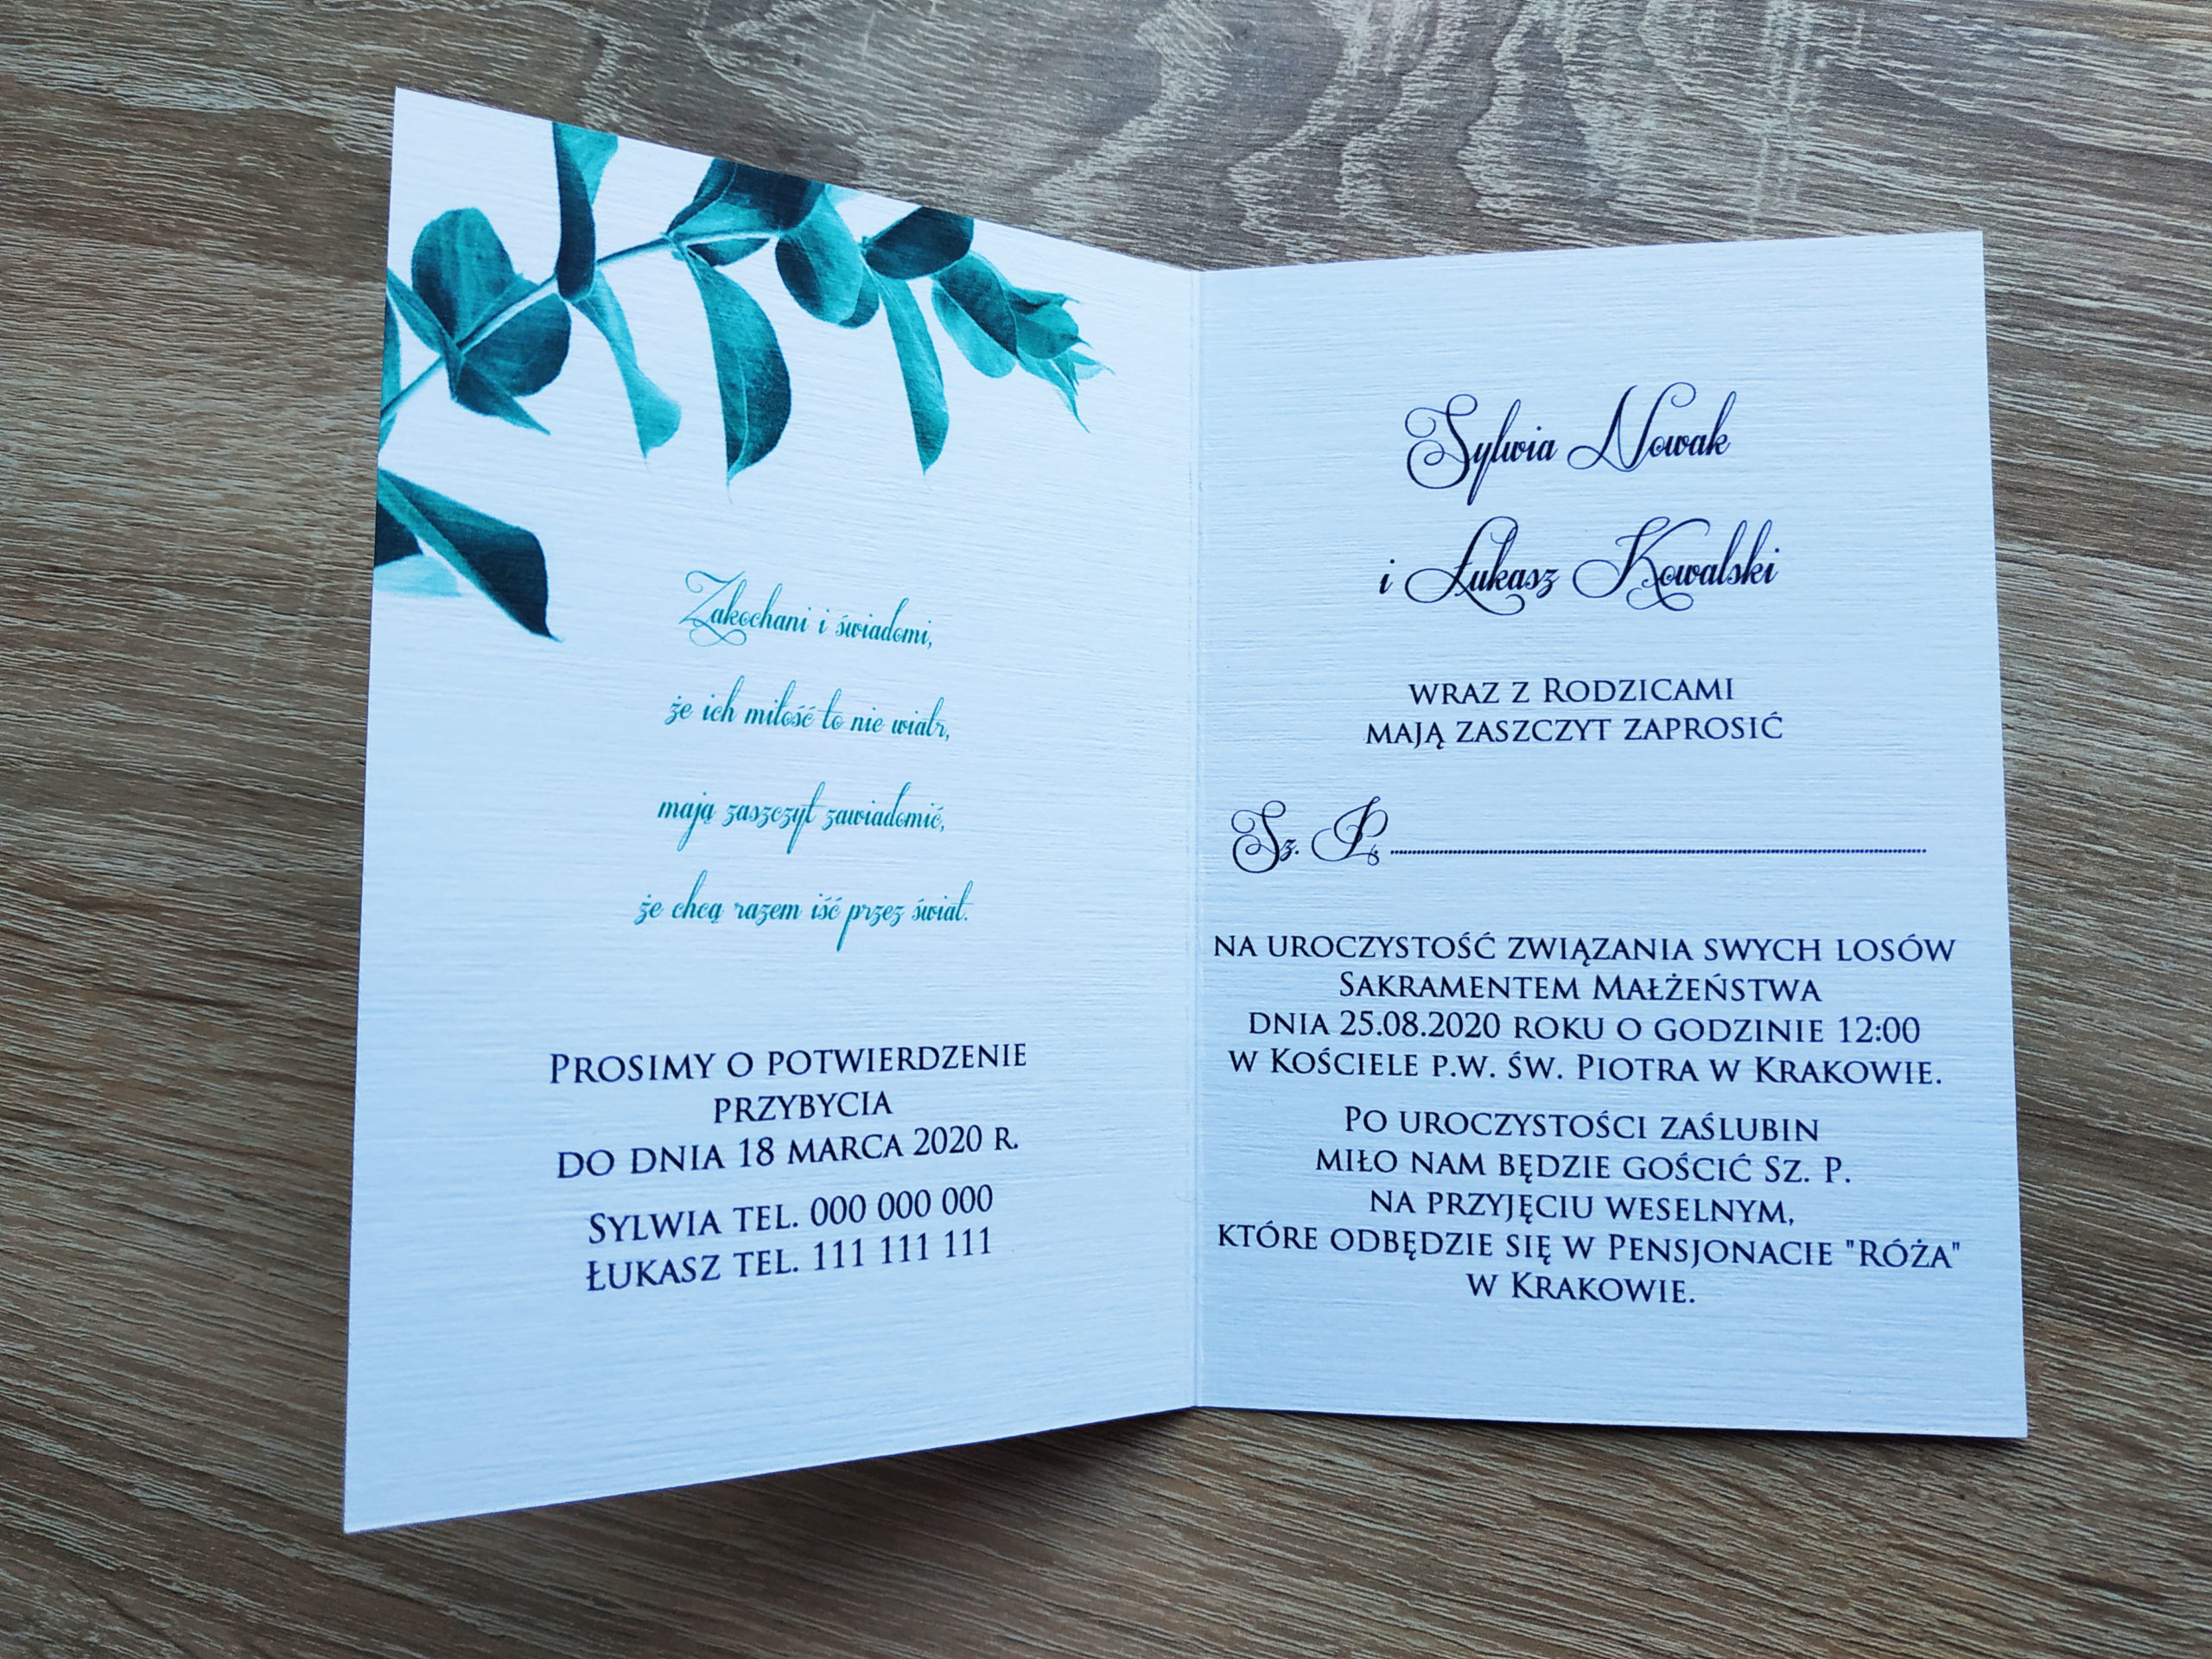 Zakochani i świadomi,
że ich miłość to nie wiatr,
mają zaszczyt zawiadomić,
że chcą razem iść przez świat.
Prosimy o potwierdzenie
przybycia
do dnia 18 marca 2020 r.
Sylwia tel. 000 000 000
Łukasz tel. 111 111 111
Sylwia Nowak
i Łukasz Kowalski
wraz z Rodzicami
mają zaszczyt zaprosić
Sz. P. ................................................
na uroczystość związania swych losów
Sakramentem Małżeństwa
dnia 25.08.2020 roku o godzinie 12:00
w Kościele p.w. św. Piotra w Krakowie.
Po uroczystości zaślubin
miło nam będzie gościć Sz. P.
na przyjęciu weselnym,
które odbędzie się w Pensjonacie "Róża"
w Krakowie.